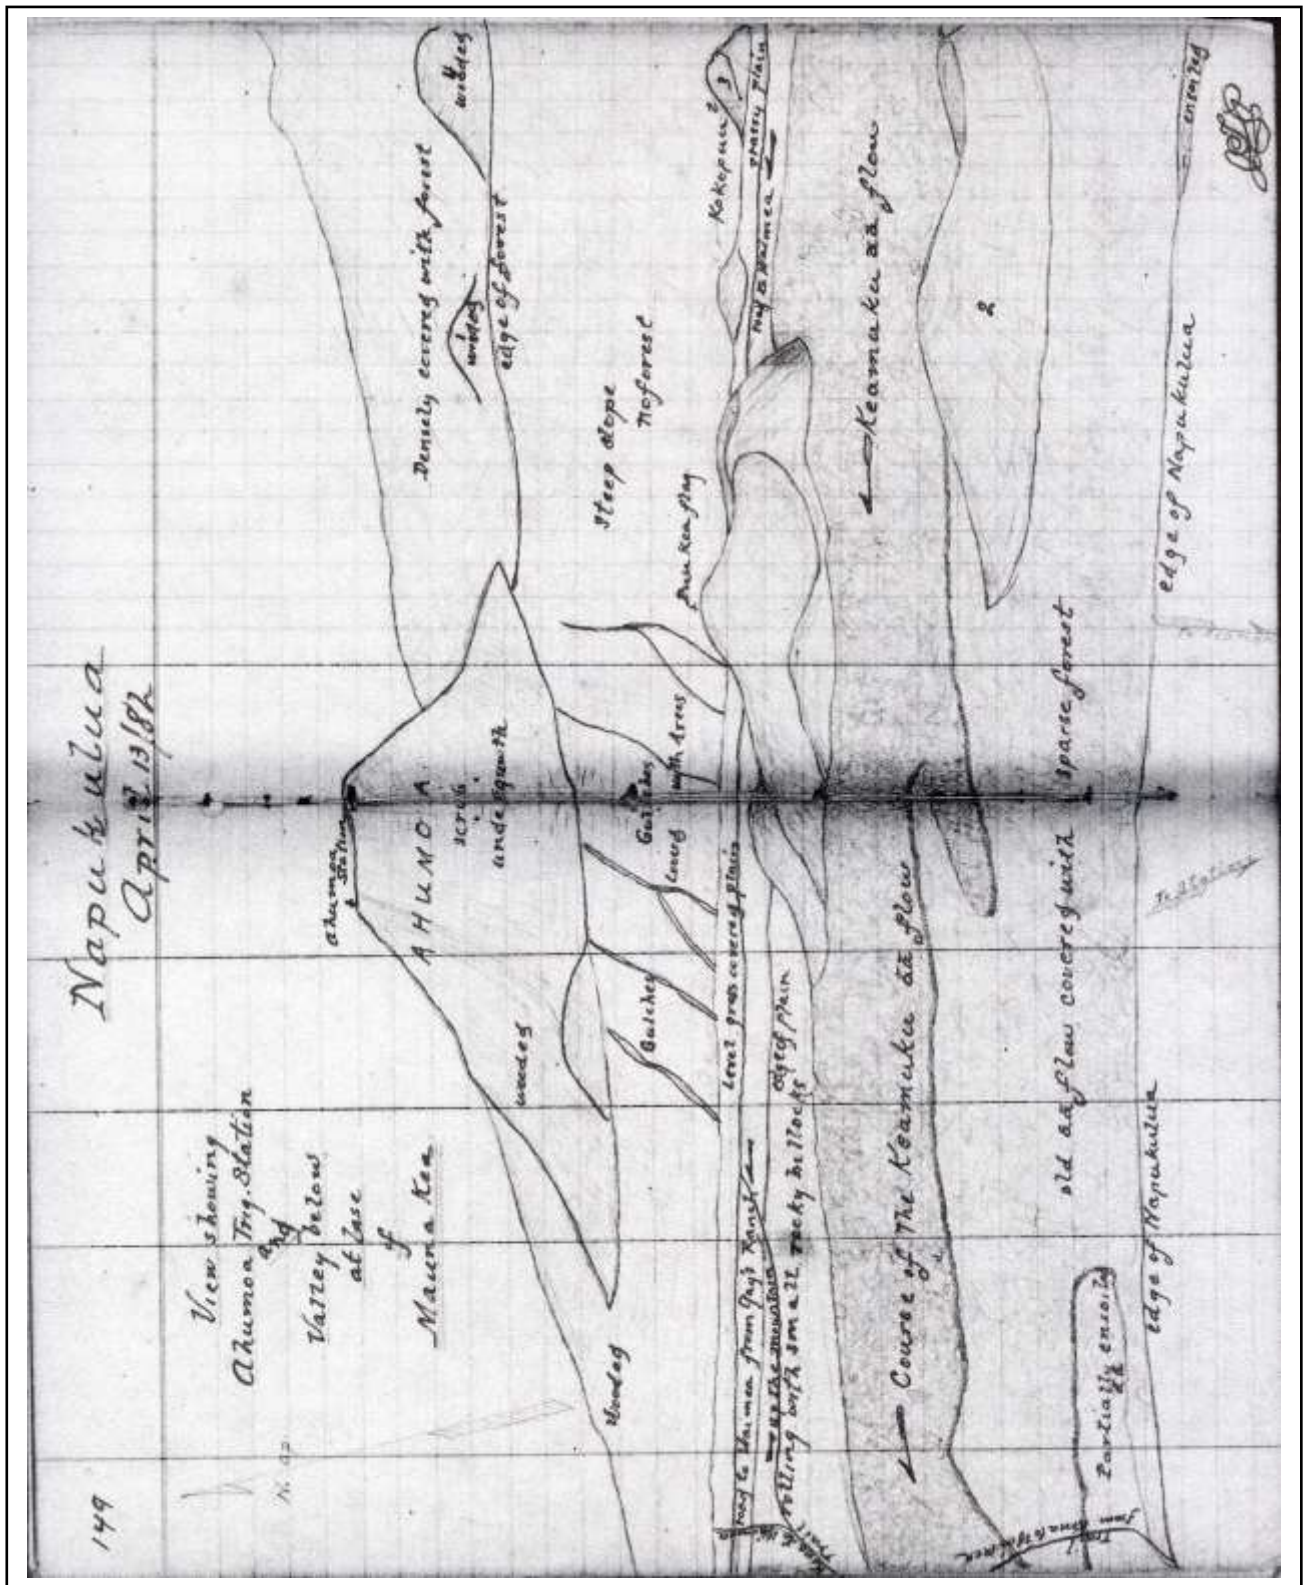 149
Napukulua
April 13/82
View showing
Ahumoa Trig. Station
and
Valley below
at base
of
Mauna Kea
Ahumoa
Station
AHUMOA
scrub
undergrowth
wooded
Wooded
Densely covered with forest
wooded
4
wooded
edge of forest
Steep slope
No forest
Gulches
Gulches
covered with trees
Puu Kea flag
Kokopuu
2
3
grassy plain
road to Waimea
Level grass covered plain
road to Waimea from Gay's Ranch
up the mountain
edge of plain
rolling with small rocky hillocks
Keamuku aā flow
Course of The Keamuku aā flow
2
old aā flow covered with sparse forest
Partially ensoiled
aā
Trail
edge of Napukulua
edge of Napukulua
ensoiled